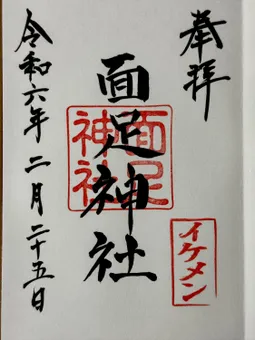 奉拝
面足神社
面足神社
イケメン
令和六年二月二十五日